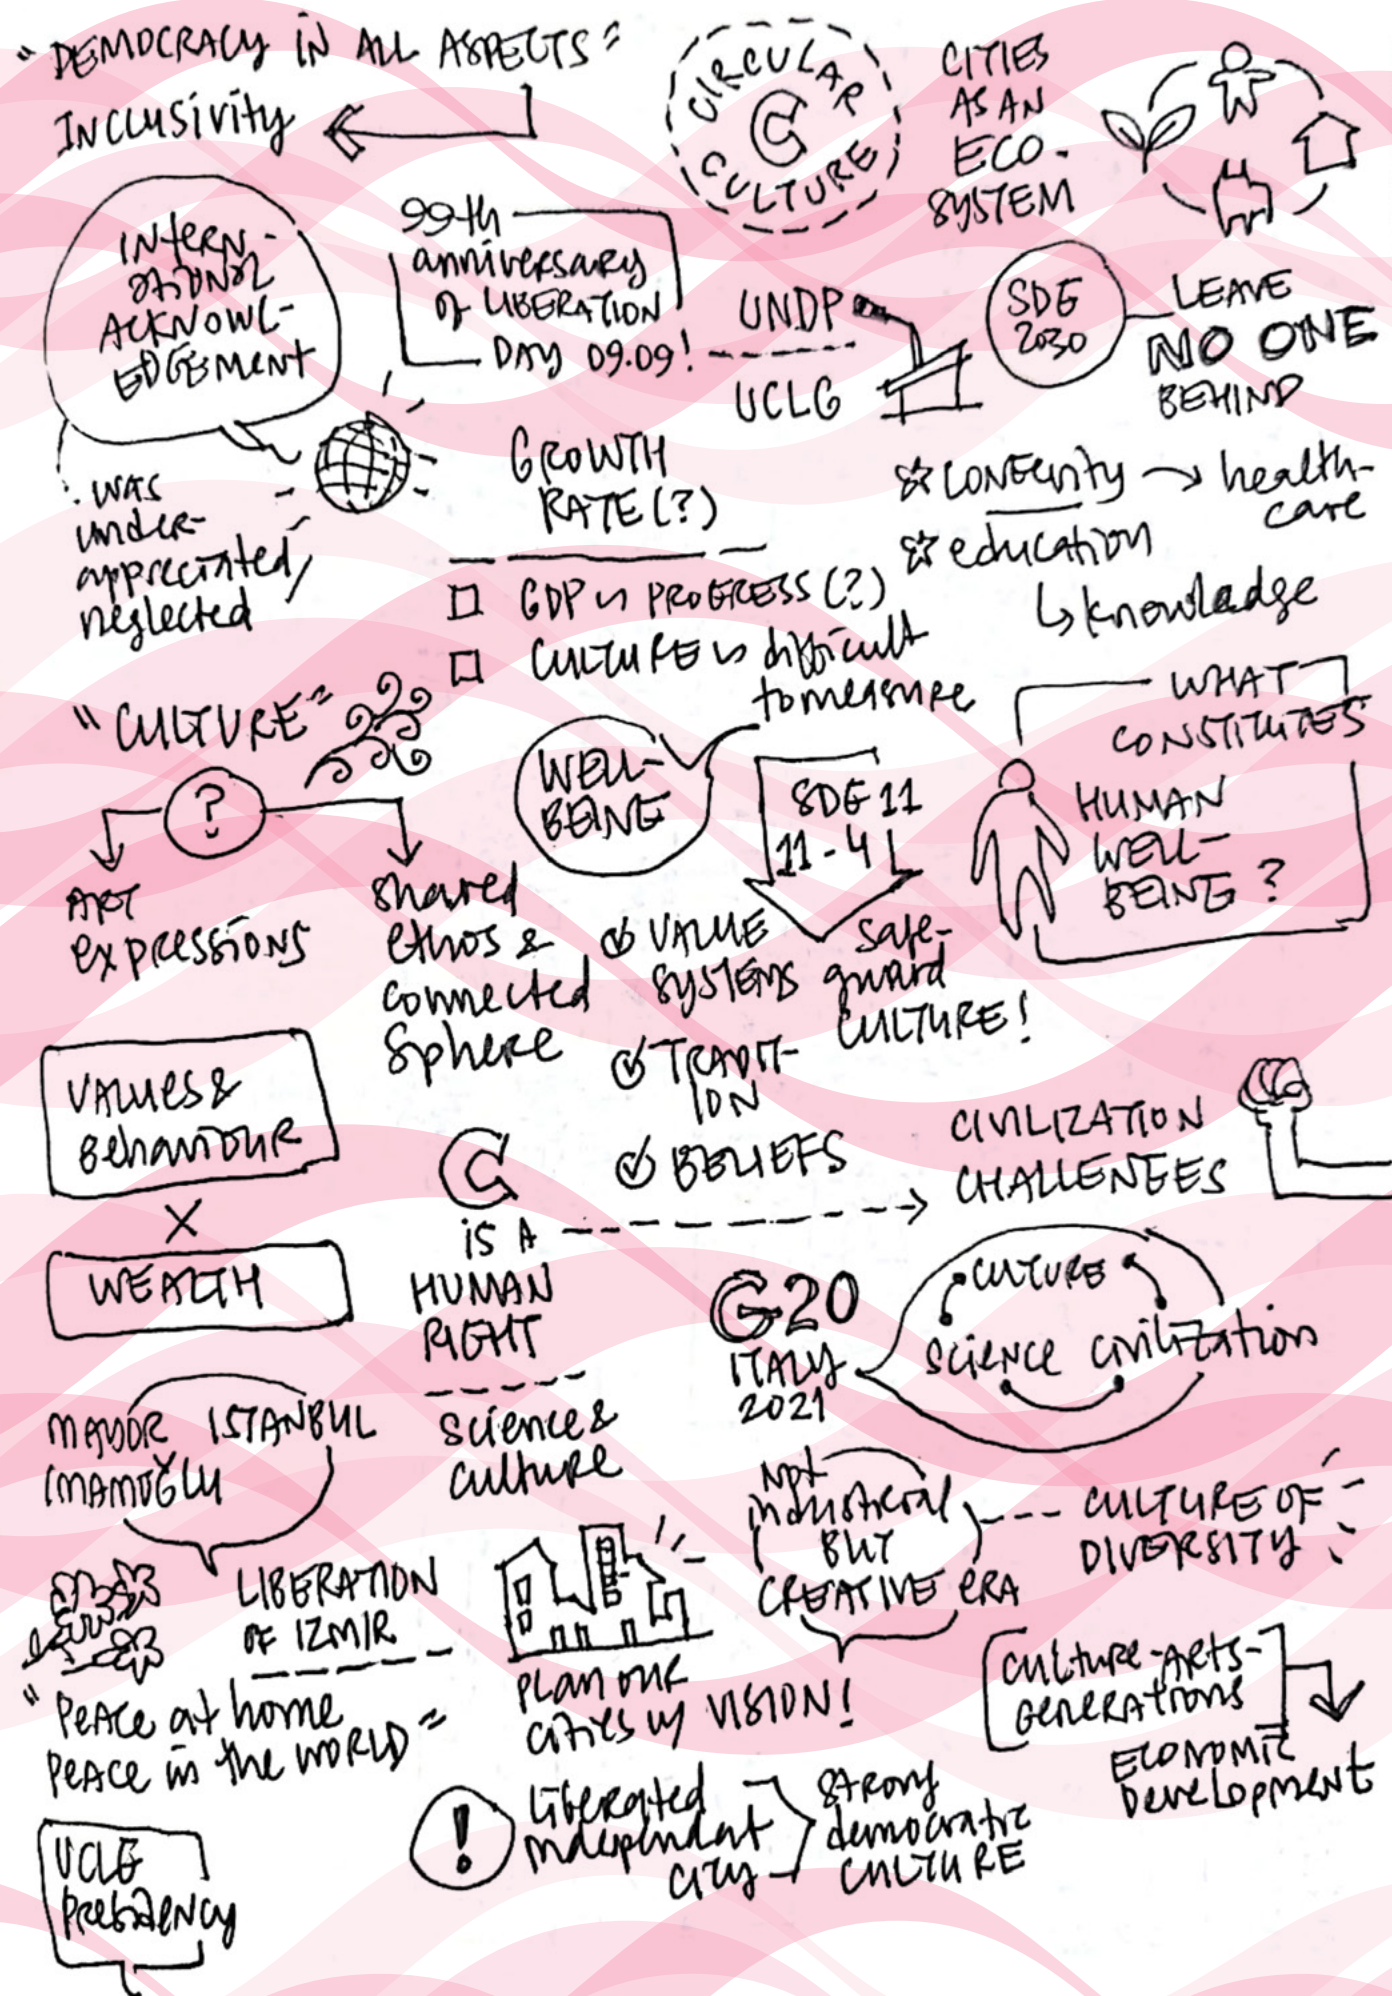 "DEMOCRACY IN ALL ASPECTS"
INCLUSIVITY
CIRCULAR
C
CULTURE
CITIES
AS AN
ECO-
SYSTEM
INTERN-
ATIONAL
ACKNOWL-
EDGEMENT
99th
anniversary
of LIBERATION
DAY 09.09!
UNDP
UCLG
SDG
2030
LEAVE
NO ONE
BEHIND
was
under-
appreciated/
neglected
GROWTH
RATE (?)
GDP vs PROGRESS (?)
CULTURE is difficult
to measure
LONGEVITY → health-
care
education
knowledge
"CULTURE"
?
ART
expressions
shared
ethos &
connected
sphere
WELL-
BEING
SDG 11
11-4
safe-
guard
CULTURE!
WHAT
CONSTITUTES
HUMAN
WELL-
BEING?
VALUE
SYSTEMS
TRADIT-
ION
BELIEFS
VALUES &
Behaviour
X
WEALTH
C
is A
HUMAN
RIGHT
science &
culture
CIVILIZATION
CHALLENGES
G20
ITALY
2021
CULTURE
science civilization
MAYOR ISTANBUL
IMAMOĞLU
Not
industrial
BUT
CREATIVE ERA
CULTURE OF
DIVERSITY
LIBERATION
OF IZMIR
"Peace at home
Peace in the WORLD"
PLAN OUR
cities w/ VISION!
culture-ARTS-
Generations
ECONOMIC
Development
!
liberated
independent
city
strong
democratic
CULTURE
UCLG
Presidency